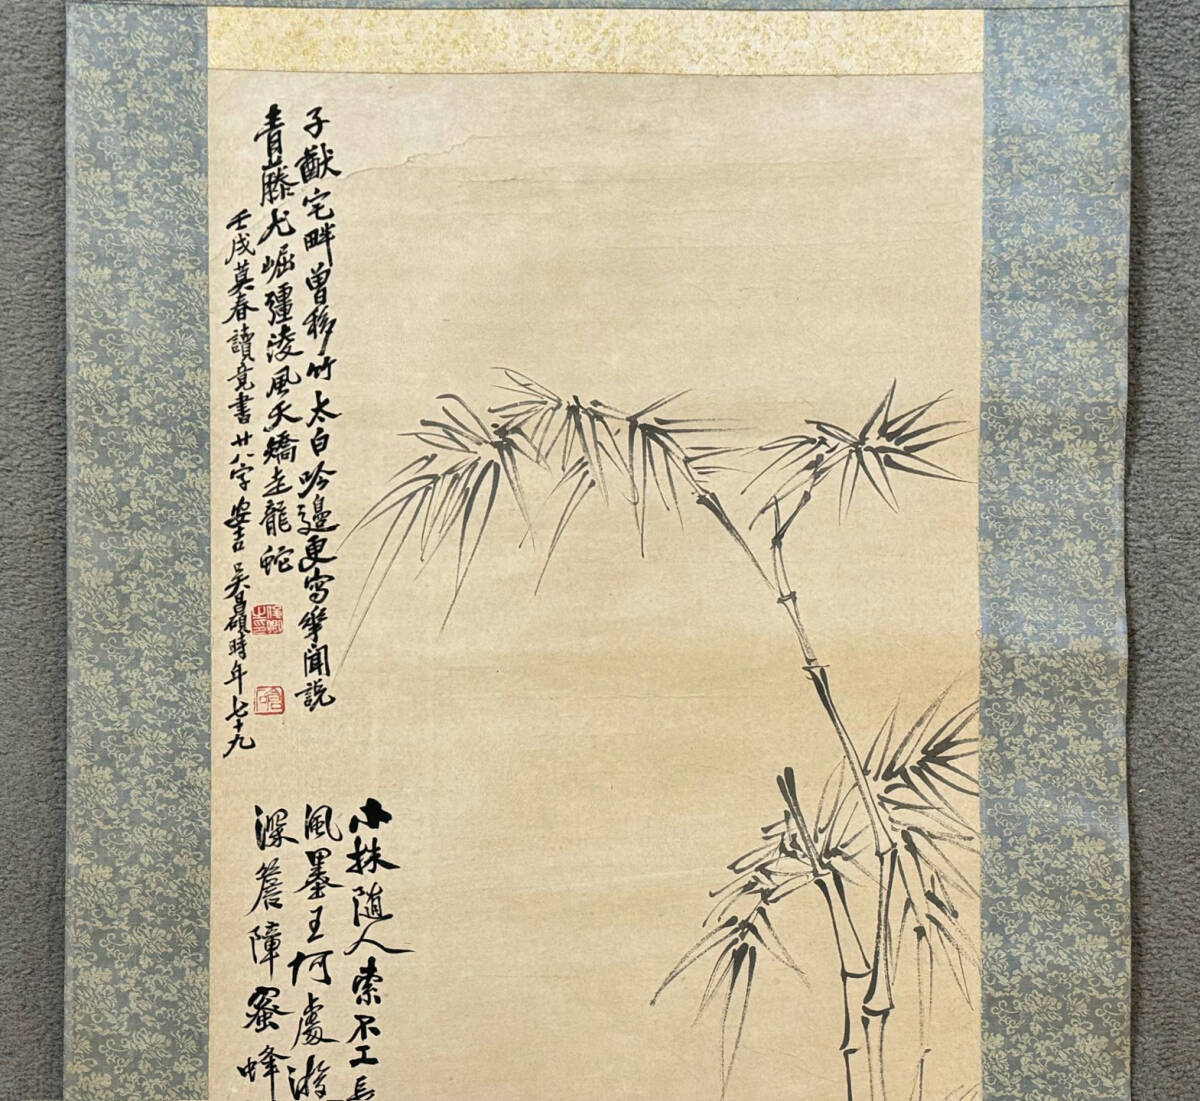 子猷宅畔曾移竹太白吟邊更寫華聞説
青藤尤崛彊淩風夭矯走龍蛇
壬戌莫春讀竟書廿八字安吉吳昌碩時年七十九
小株隨人索不工長
風墨王何處游
深簷障蜜蜂